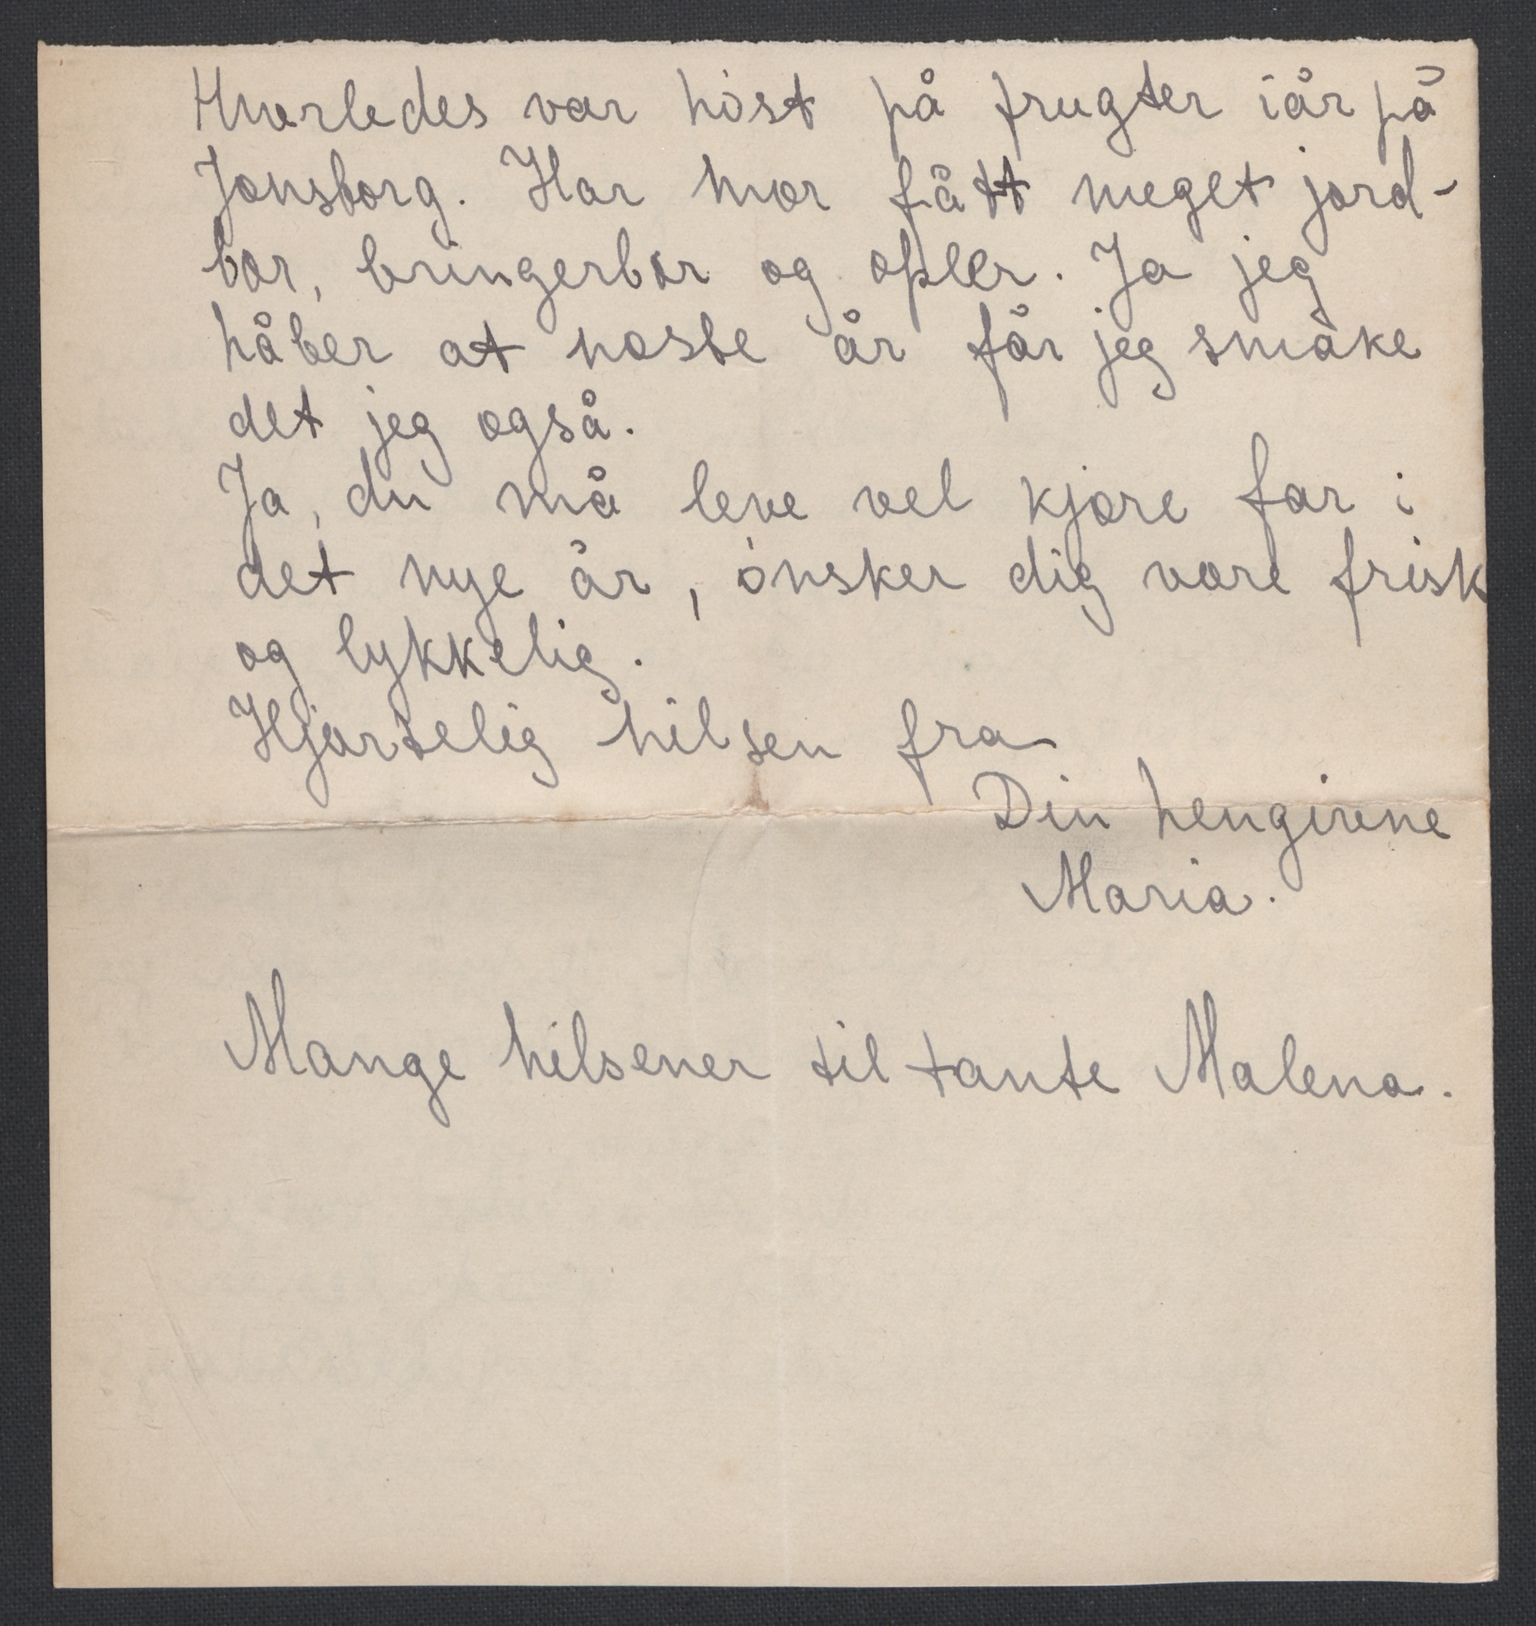 Hvorledes var høst på frugter iår på
Jonsborg. Har mor fått meget jord-
bær, bringerbær og epler. Ja jeg
håber at næste år får jeg småke
det jeg også.
Ja, du må leve vel kjære far i
det nye år, ønsker dig være frisk
og lykkelig.
Hjærtelig hilsen fra
Din hengivne
Maria.
Mange hilsener til tante Malena.